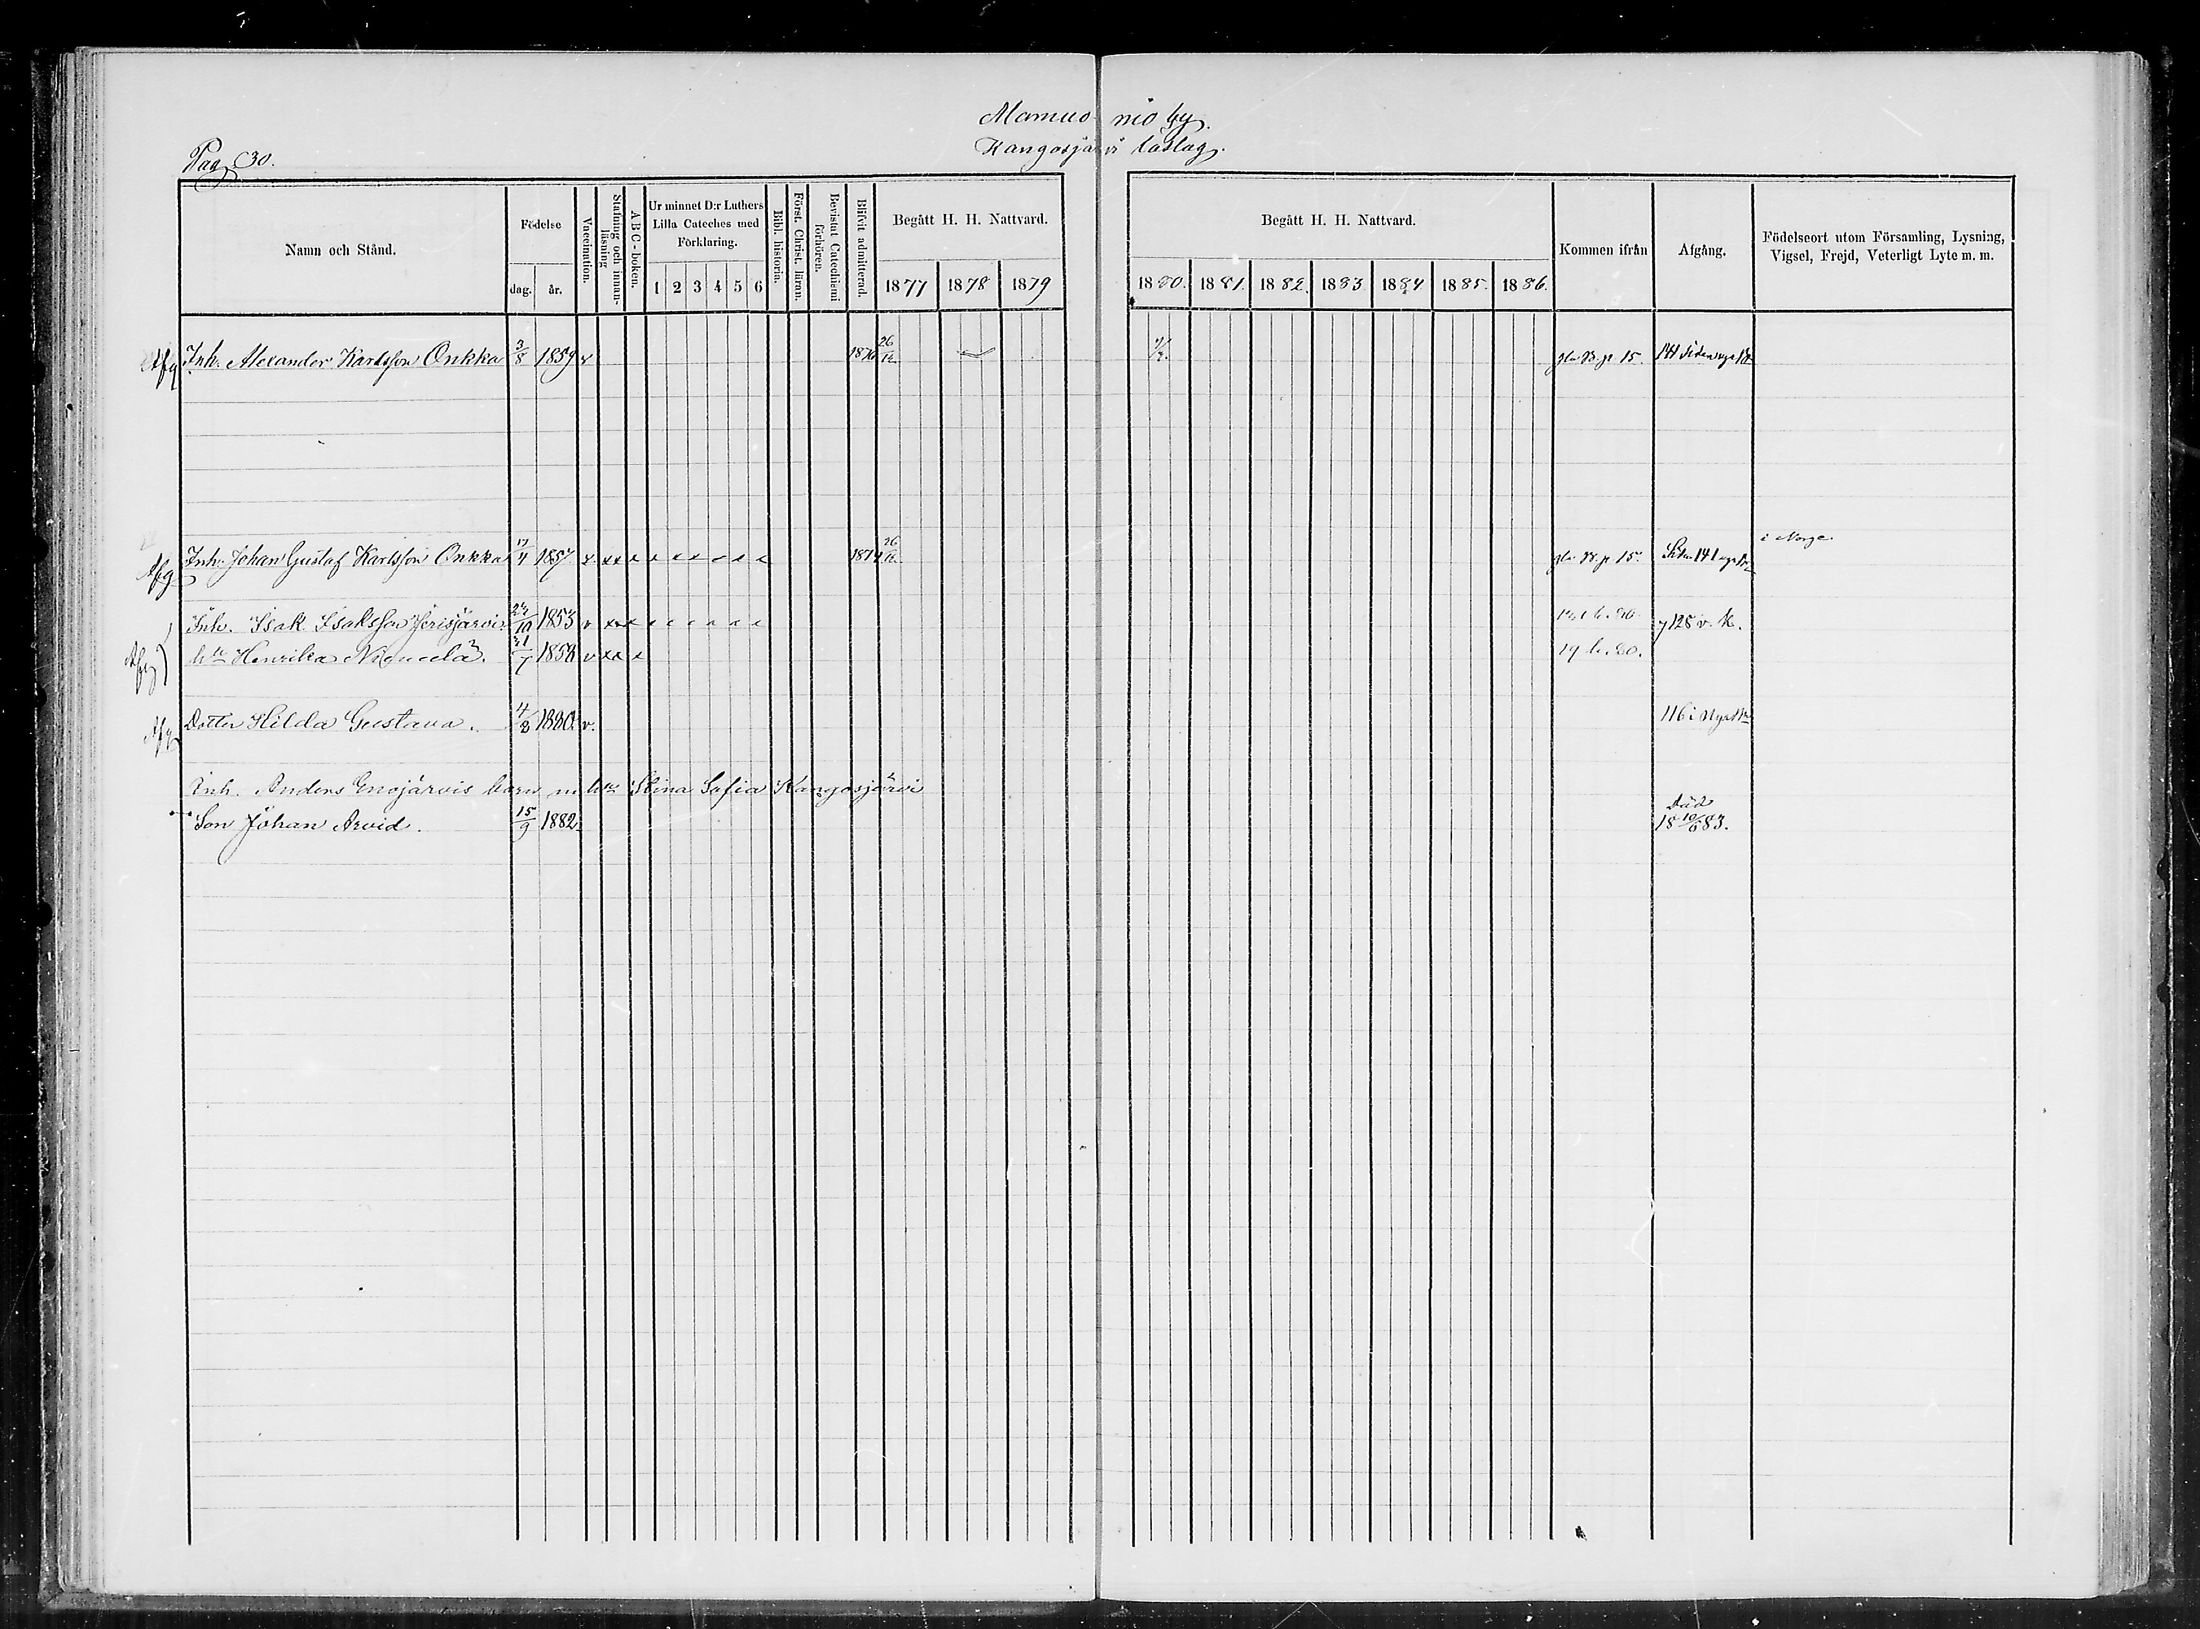 Pag 30.
Mamuo nio by.
Kangosjärvi
Namn och Stånd.
Födelse
dag.
år.
Vaccination.
Stafning och innan-
läsning
ABC-boken.
Ur minnet D:r Luthers
Lilla Cateches med
Förklaring.
1 2 3 4 5 6
Bibl. historia.
Först. Christ. läran.
Bevistat Catechismi
förhören.
Blifvit admitterad.
Begått H. H. Nattvard.
1877 1878 1879
Begått H. H. Nattvard.
1880. 1881. 1882. 1883. 1884 1885. 1886.
Kommen ifrån
Afgång.
Födelseort utom Församling, Lysning,
Vigsel, Frejd, Veterligt Lyte m. m.
Afg Inh. Alexander Karlsson Onkka 3/8 1859 1876 26/12 p 15. 141
i Norge.
Afg Inh. Johan Gustaf Karlsson Onkka 17/4 1857 x xx x 1874 26/12 p 15. 141
Inh. Isak Isaksson Jerisjärvi 1853 v xx x 128 v. K.
Afg h:u Henrika Niemelä. 1858 v xx x 19
Afg Dotter Hilda Gustava. 4/8 1880. v. 116 i Nya
Inh. Anders Enojärvis barn m h:u Stina Sofia Kangosjärvi
Son Johan Arvid. 15/9 1882. Död
18 10/6 83.